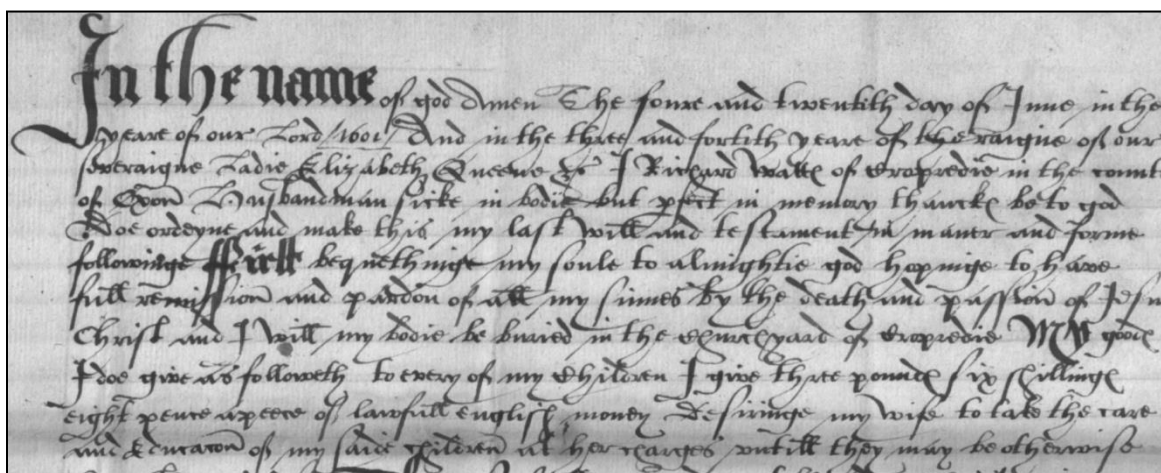 In the name of god Amen The foure and twentith day of June in the
yeare of our Lord 1601 And in the three and fortith yeare of the raigne of our
soveraigne Ladie Elizabeth Queene &c I Richard Watts of Cropredie in the count
of Oxon Husbandman sicke in bodie but pfect in memory thanckes be to god
Doe ordeyne and make this my last will and testament in maner and forme
followinge ffirst bequethinge my soule to almightie god hopinge to have
full remission and pardon of all my sinnes by the death and passion of Jesu
Christ and I will my bodie be buried in the Churchyard of Cropredie My goodes
I doe give as followeth to every of my Children I give three poundes six shillinges
eight pence apeece of lawfull english money Desiringe my wife to take the care
and educacon of my saide children at her charges untill they may be otherwise